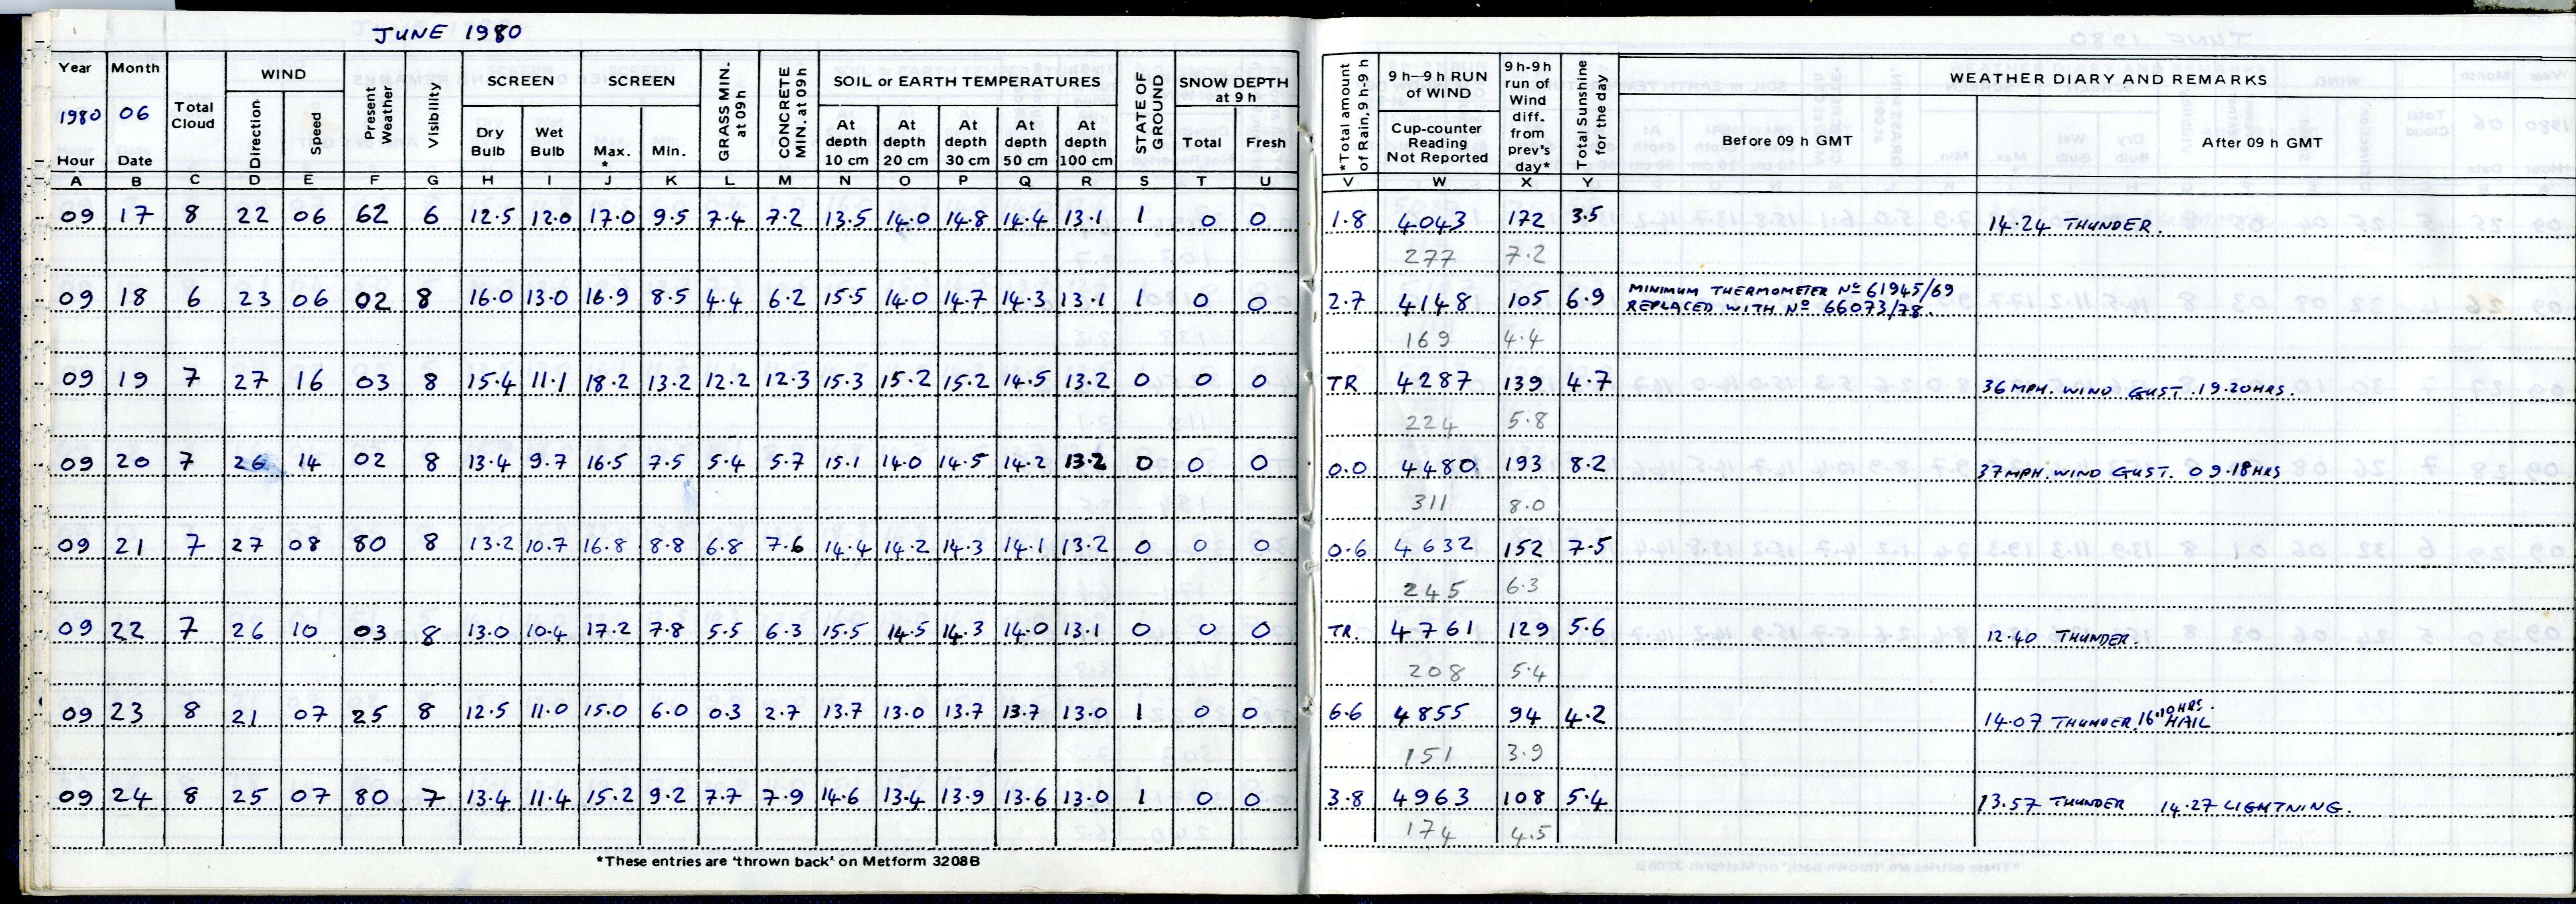 JUNE 1980
Year Month WIND SCREEN SCREEN SOIL or EARTH TEMPERATURES SNOW DEPTH at 9 h
1980 06 Total Cloud Direction Speed Present Weather Visibility Dry Bulb Wet Bulb Max. * Min. GRASS MIN. at 09 h CONCRETE MIN. at 09 h At depth 10 cm At depth 20 cm At depth 30 cm At depth 50 cm At depth 100 cm STATE OF GROUND Total Fresh
Hour Date
A B C D E F G H I J K L M N O P Q R S T U
09 17 8 22 06 62 6 12.5 12.0 17.0 9.5 7.4 7.2 13.5 14.0 14.8 14.4 13.1 1 0 0
09 18 6 23 06 02 8 16.0 13.0 16.9 8.5 4.4 6.2 15.5 14.0 14.7 14.3 13.1 1 0 0
09 19 7 27 16 03 8 15.4 11.1 18.2 13.2 12.2 12.3 15.3 15.2 15.2 14.5 13.2 0 0 0
09 20 7 26 14 02 8 13.4 9.7 16.5 7.5 5.4 5.7 15.1 14.0 14.5 14.2 13.2 0 0 0
09 21 7 27 08 80 8 13.2 10.7 16.8 8.8 6.8 7.6 14.4 14.2 14.3 14.1 13.2 0 0 0
09 22 7 26 10 03 8 13.0 10.4 17.2 7.8 5.5 6.3 15.5 14.5 14.3 14.0 13.1 0 0 0
09 23 8 21 07 25 8 12.5 11.0 15.0 6.0 0.3 2.7 13.7 13.0 13.7 13.7 13.0 1 0 0
09 24 8 25 07 80 7 13.4 11.4 15.2 9.2 7.7 7.9 14.6 13.4 13.9 13.6 13.0 1 0 0
*These entries are 'thrown back' on Metform 3208B
*Total amount of Rain, 9 h-9 h 9 h–9 h RUN of WIND Cup-counter Reading Not Reported 9 h-9 h run of Wind diff. from prev's day* Total Sunshine for the day WEATHER DIARY AND REMARKS
Before 09 h GMT After 09 h GMT
V W X Y
1.8 4043 172 3.5 14.24 THUNDER.
277 7.2
2.7 4148 105 6.9 MINIMUM THERMOMETER Nº 61945/69
REPLACED WITH Nº 66073/78.
169 4.4
TR 4287 139 4.7 36 MPH. WIND GUST. 19.20HRS.
224 5.8
0.0 4480. 193 8.2 37MPH. WIND GUST. 09.18HRS
311 8.0
0.6 4632 152 7.5
245 6.3
TR. 4761 129 5.6 12.40 THUNDER.
208 5.4
6.6 4855 94 4.2 14.07 THUNDER. 16.10HRS. HAIL
151 3.9
3.8 4963 108 5.4 13.57 THUNDER 14.27 LIGHTNING.
174 4.5